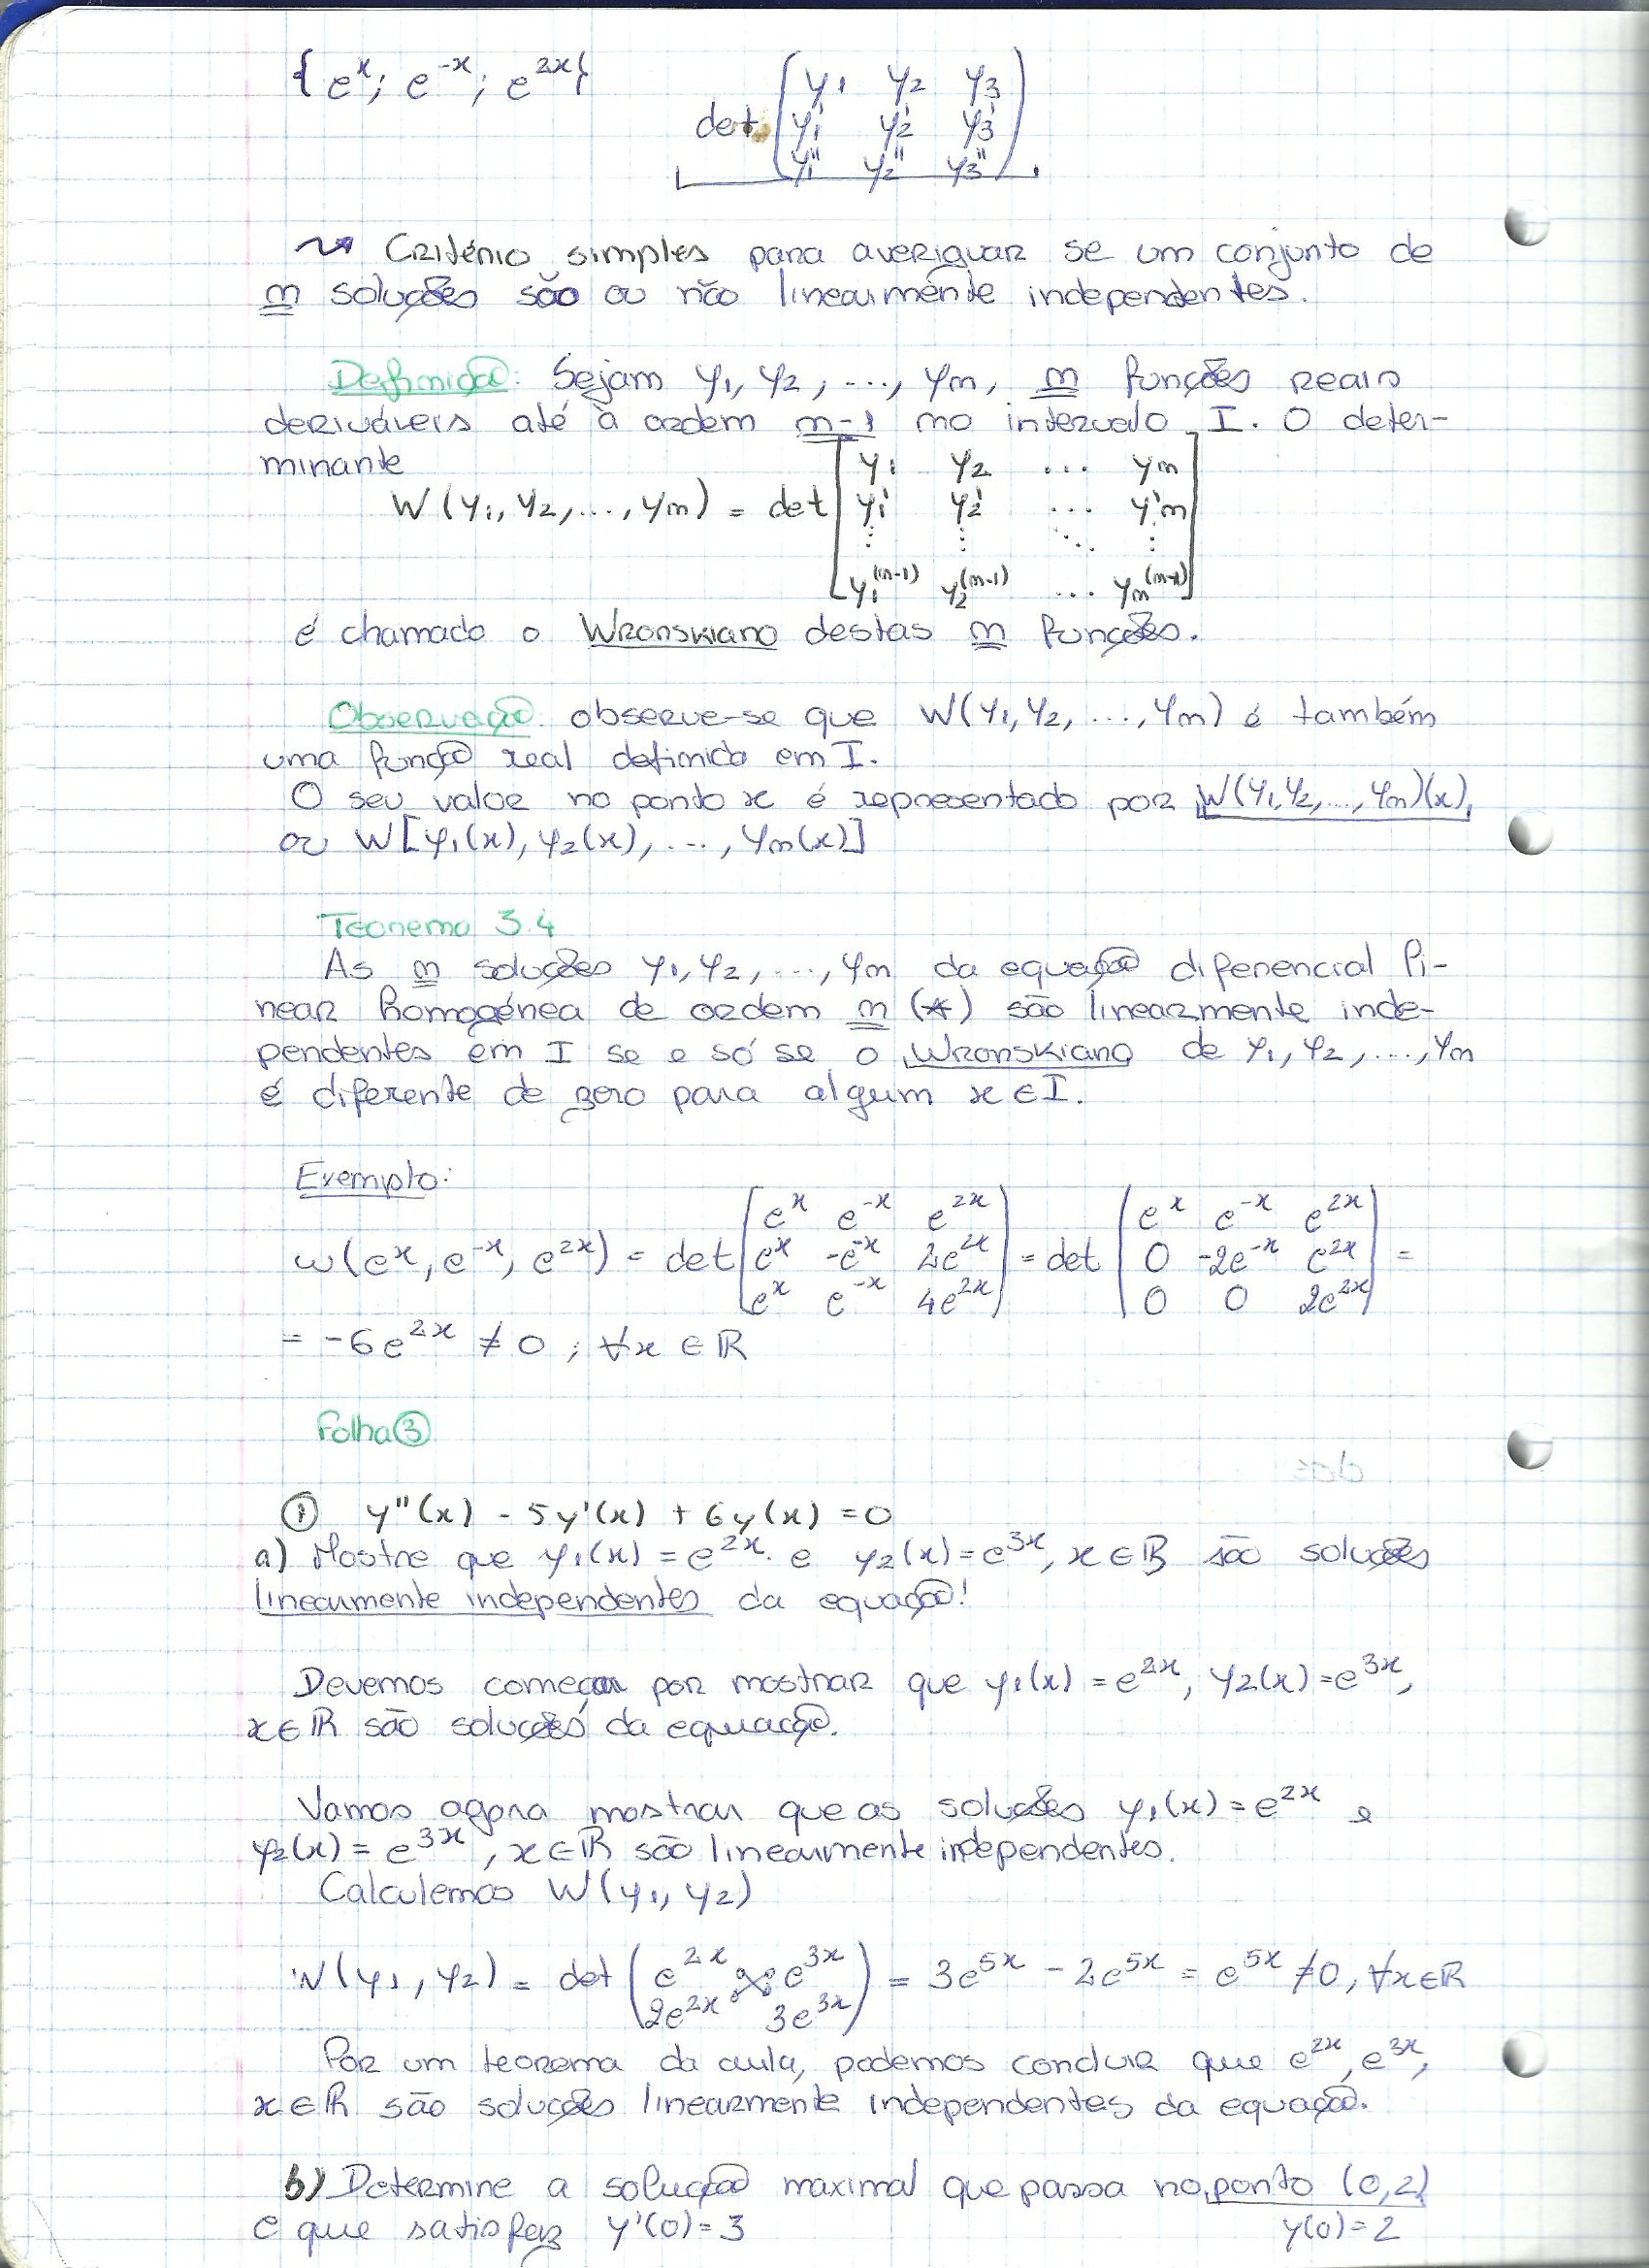 {eˣ; e⁻ˣ; e²ˣ}
det (y₁ y₂ y₃
y₁' y₂' y₃'
y₁'' y₂'' y₃'')
Critério simples para averiguar se um conjunto de
n soluções são ou não linearmente independentes.
Definição: Sejam y₁, y₂, ..., yₙ, n funções reais
deriváveis até à ordem n-1 no intervalo I. O deter-
minante
W(y₁, y₂, ..., yₙ) = det [y₁ y₂ ... yₙ
y₁' y₂' ... y'ₙ
⋮ ⋮ ⋱ ⋮
y₁⁽ⁿ⁻¹⁾ y₂⁽ⁿ⁻¹⁾ ... yₙ⁽ⁿ⁻¹⁾]
é chamado o Wronskiano destas n funções.
Observação: observe-se que W(y₁, y₂, ..., yₙ) é também
uma função real definida em I.
O seu valor no ponto x é representado por W(y₁, y₂, ..., yₙ)(x),
ou W[y₁(x), y₂(x), ..., yₙ(x)]
Teorema 3.4
As n soluções y₁, y₂, ..., yₙ da equação diferencial li-
near homogénea de ordem n (*) são linearmente inde-
pendentes em I se e só se o Wronskiano de y₁, y₂, ..., yₙ
é diferente de zero para algum x ∈ I.
Exemplo:
w(eˣ, e⁻ˣ, e²ˣ) = det (eˣ e⁻ˣ e²ˣ
eˣ -e⁻ˣ 2e²ˣ
eˣ e⁻ˣ 4e²ˣ) = det (eˣ e⁻ˣ e²ˣ
0 -2e⁻ˣ e²ˣ
0 0 2e²ˣ) =
= -6e²ˣ ≠ 0 ; ∀x ∈ ℝ
Folha ③
① y''(x) - 5y'(x) + 6y(x) = 0
a) Mostre que y₁(x) = e²ˣ e y₂(x) = e³ˣ, x ∈ ℝ são soluções
linearmente independentes da equação!
Devemos começar por mostrar que y₁(x) = e²ˣ, y₂(x) = e³ˣ,
x ∈ ℝ são soluções da equação.
Vamos agora mostrar que as soluções y₁(x) = e²ˣ e
y₂(x) = e³ˣ, x ∈ ℝ são linearmente independentes.
Calculemos W(y₁, y₂)
W(y₁, y₂) = det (e²ˣ e³ˣ
2e²ˣ 3e³ˣ) = 3e⁵ˣ - 2e⁵ˣ = e⁵ˣ ≠ 0, ∀x ∈ ℝ
Por um teorema da aula, podemos concluir que e²ˣ, e³ˣ,
x ∈ ℝ são soluções linearmente independentes da equação.
b) Determine a solução maximal que passa no ponto (0,2)
e que satisfaz y'(0) = 3
y(0) = 2